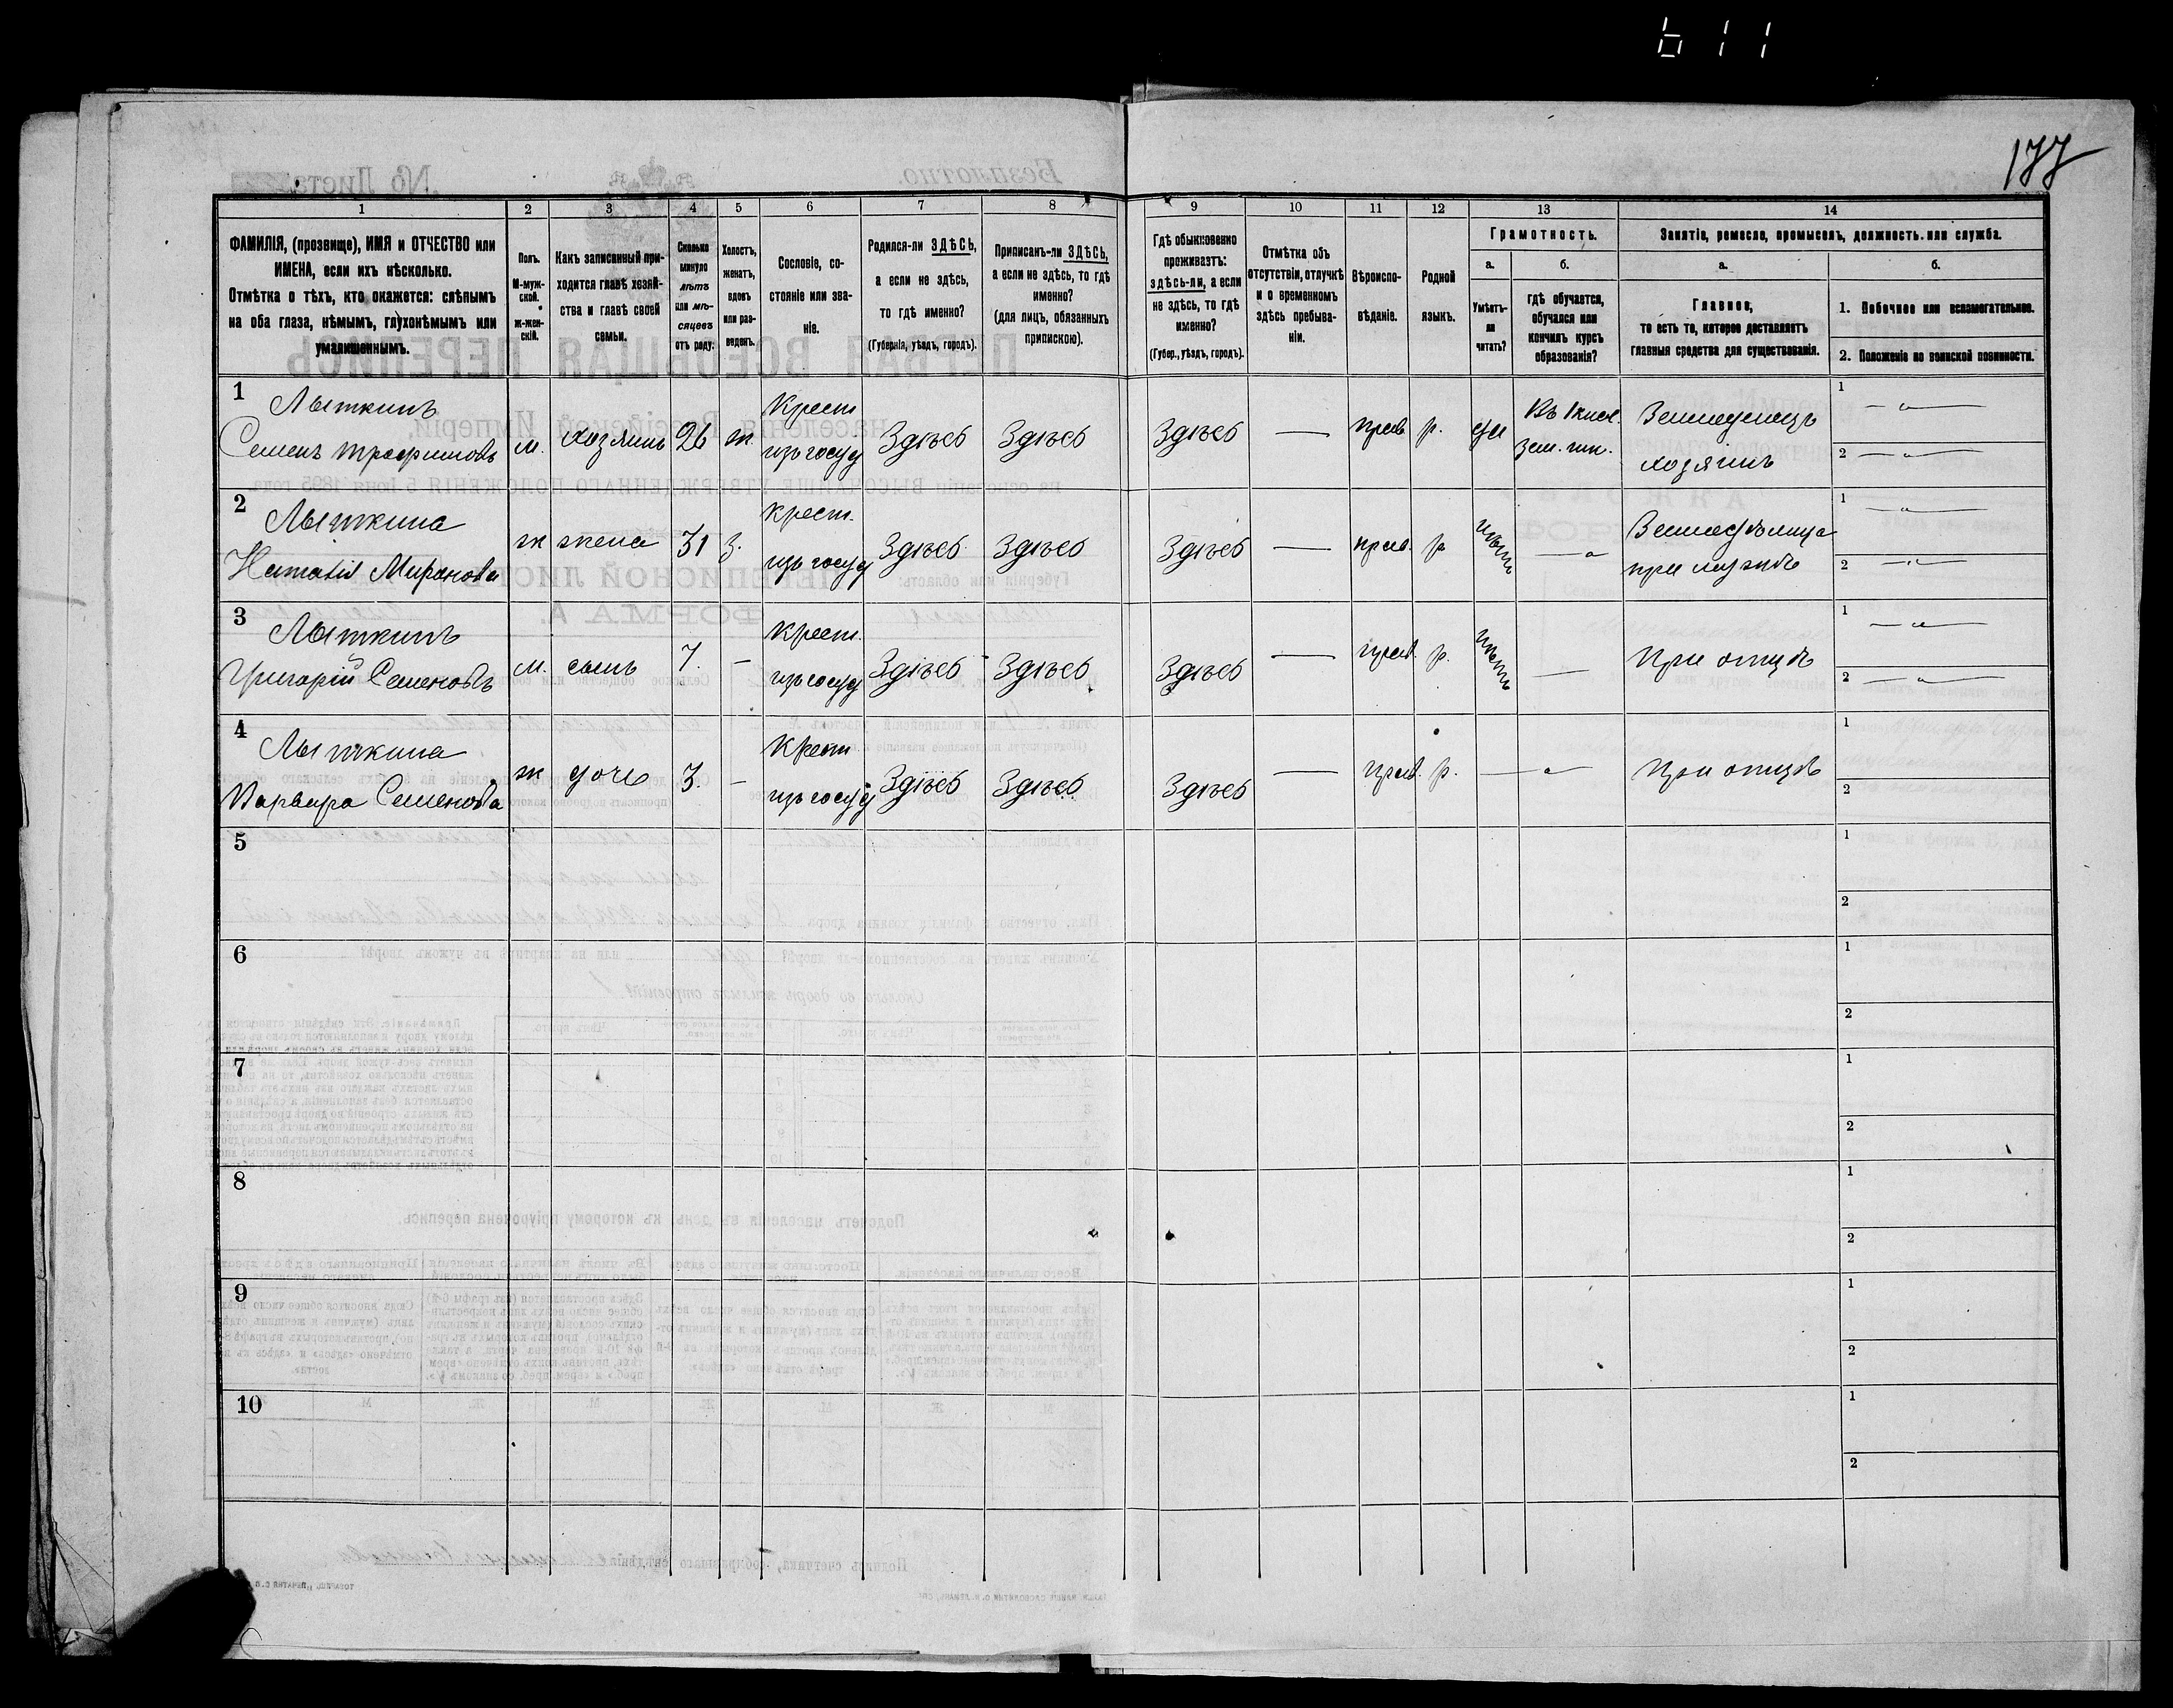 611
177
1 2 3 4 5 6 7 8 9 10 11 12 13 14
ФАМИЛІЯ, (прозвище), ИМЯ и ОТЧЕСТВО или
ИМЕНА, если ихъ нѣсколько.
Отмѣтка о тѣхъ, кто окажется: слѣпымъ
на оба глаза, нѣмымъ, глухонѣмымъ или
умалишеннымъ.
Полъ.
М-муж-
ской.
ж-жен-
скій.
Какъ записанный при-
ходится главѣ хозяй-
ства и главѣ своей
семьи.
Сколько
минуло
лѣтъ
или мѣ-
сяцевъ
отъ роду.
Холостъ,
женатъ,
вдовъ
или раз-
веденъ.
Сословіе, со-
стояніе или зва-
ніе.
Родился-ли ЗДѢСЬ,
а если не здѣсь,
то гдѣ именно?
(Губернія, уѣздъ, городъ).
Приписанъ-ли ЗДѢСЬ,
а если не здѣсь, то гдѣ
именно?
(для лицъ, обязанныхъ
припискою).
Гдѣ обыкновенно
проживаетъ:
здѣсь-ли, а если
не здѣсь, то гдѣ
именно?
(Губер., уѣздъ, городъ).
Отмѣтка объ
отсутствіи, отлучкѣ
и о временномъ
здѣсь пребыва-
ніи.
Вѣроиспо-
вѣданіе.
Родной
языкъ.
Грамотность.
а.
Умѣетъ-
ли
читать?
б.
гдѣ обучается,
обучался или
кончилъ курсъ
образованія?
Занятіе, ремесло, промыселъ, должность или служба.
а.
Главное,
то есть то, которое доставляетъ
главныя средства для существованія.
б.
1. Побочное или вспомогательное.
2. Положеніе по воинской повинности.
1 Лыткинъ
Семенъ Трофимовъ м. хозяинъ 26 ж. Крест изъ госуд Здѣсь Здѣсь Здѣсь — прав р. да
зем. шк.
Земледелецъ
хозяинъ
1 —"—
2 —"—
2 Лыткина
Наталія Миронова ж жена 31 з. крест. изъ госуд Здѣсь Здѣсь Здѣсь — прав. р нѣтъ —"
при мужѣ
1 —"—
2 —"—
3 Лыткинъ
Григорій Семеновъ м. сынъ 7. — Крест. изъ госуд Здѣсь Здѣсь Здѣсь — прав. р. нѣтъ — При отцѣ
1 —"—
2 —"—
4 Лыткина
Варвара Семенова ж дочь 3. — Крест изъ госуд Здѣсь Здѣсь Здѣсь — прав. р. —"— При отцѣ
1
2
5
1
2
6
1
2
7
1
2
8
1
2
9
1
2
10
1
2